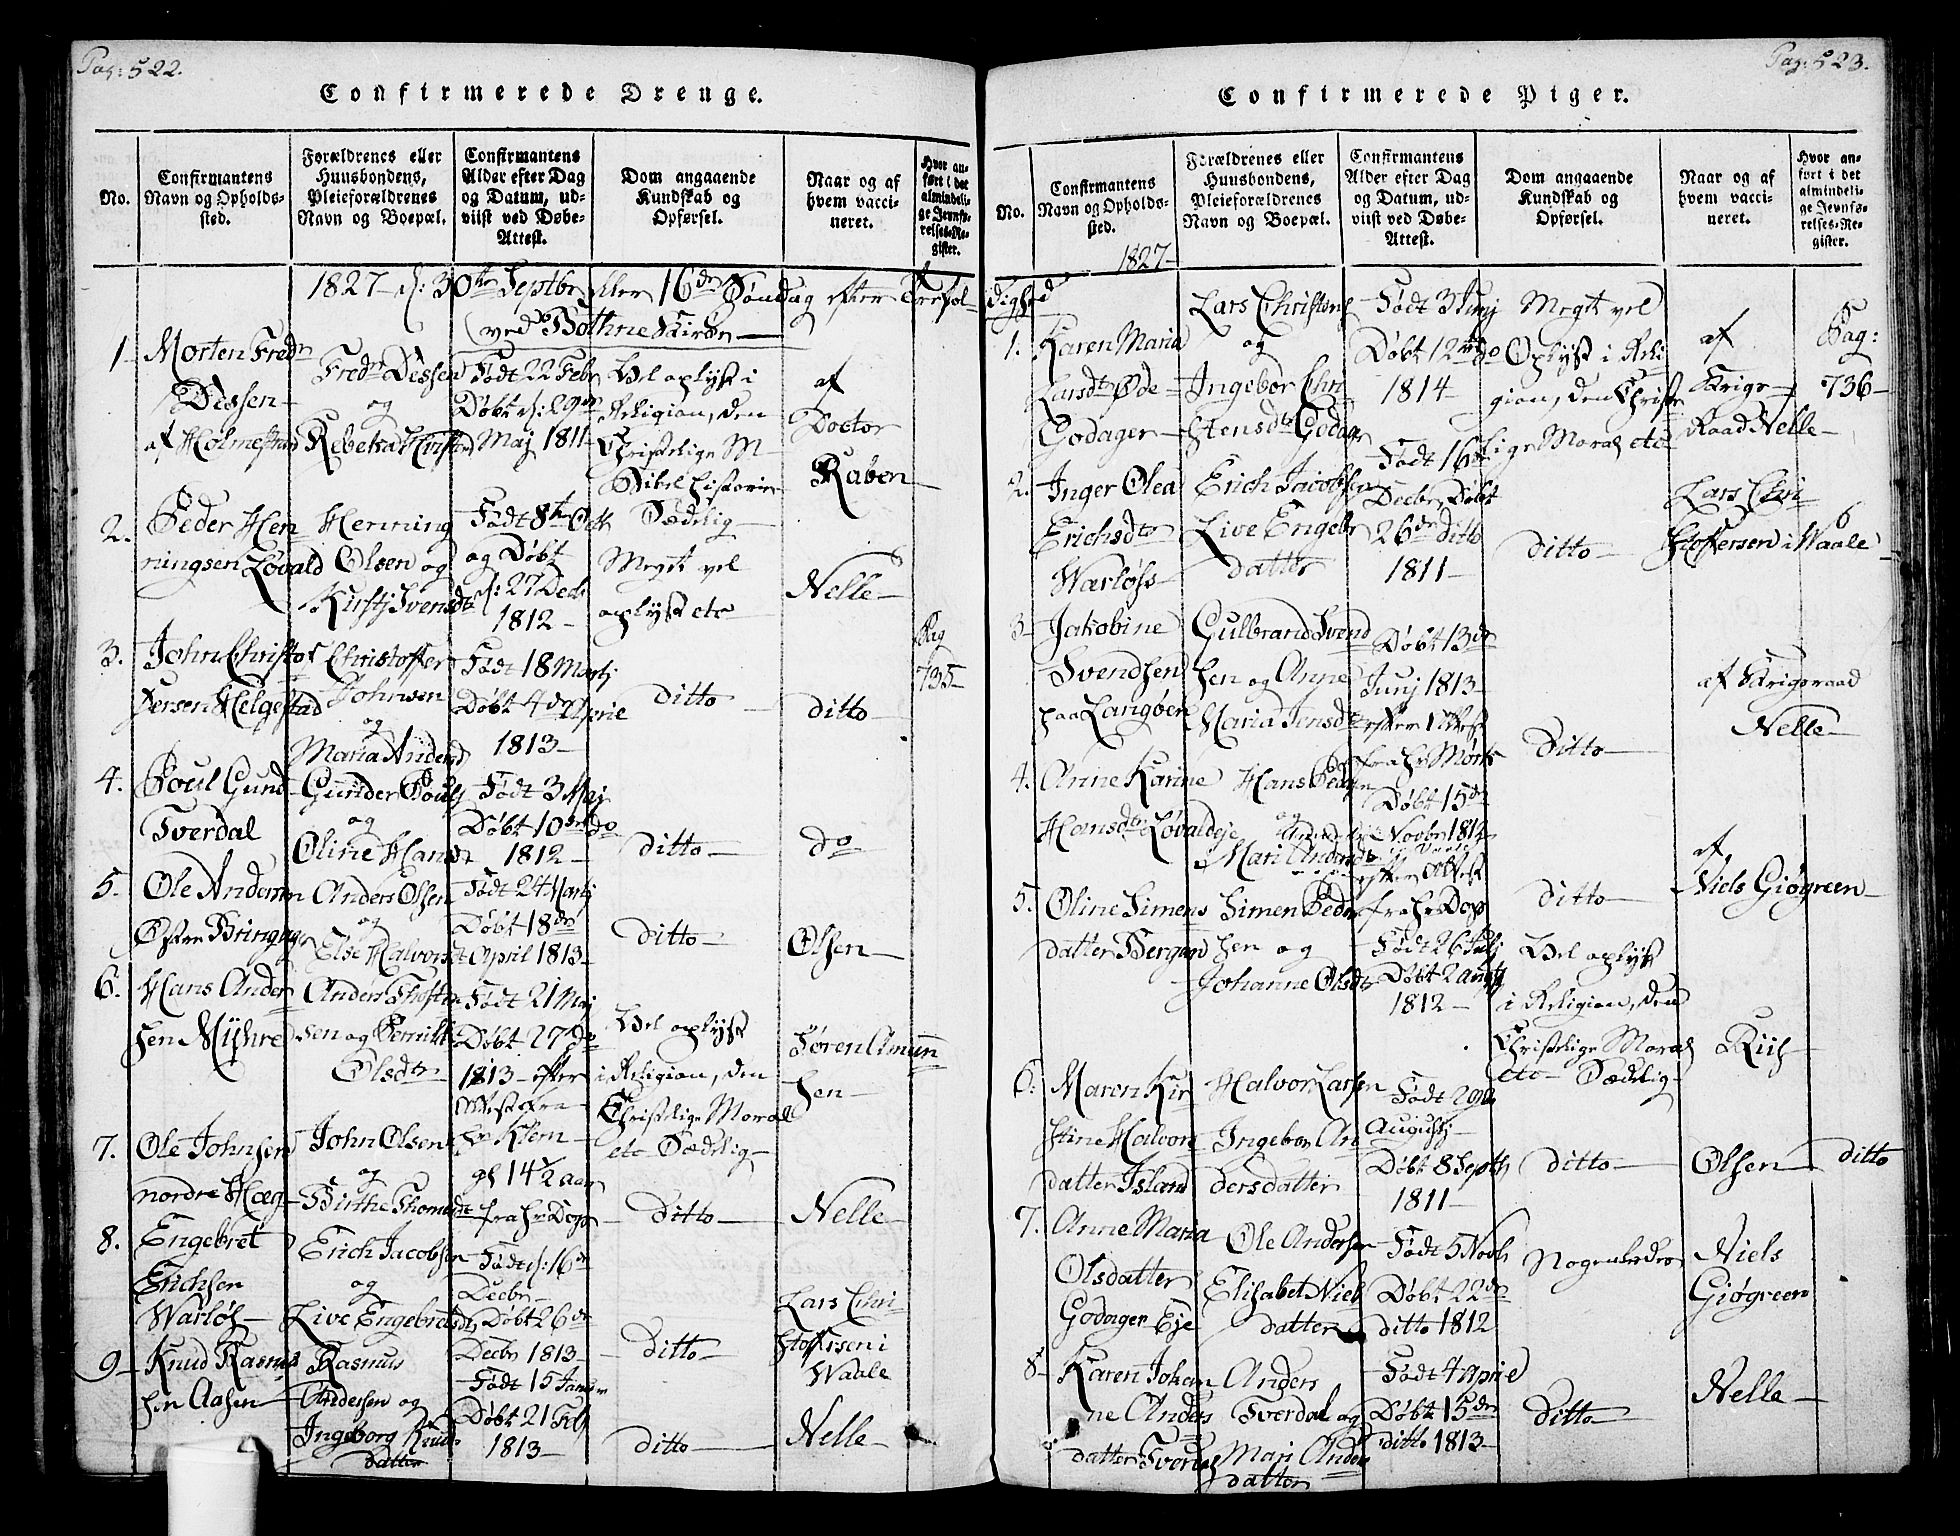 Pag: 522.
Confirmerede Drenge.
No.
Confirmantens
Navn og Opholds-
sted.
Forældrenes eller
Huusbondens,
Pleieforældrenes
Navn og Boepæl.
Confirmantens
Alder efter Dag
og Datum, ud-
viist ved Døbe-
Attest.
Dom angaaende
Kundskab og
Opførsel.
Naar og af
hvem vacci-
neret.
Hvor an-
ført i det
almindeli-
ge Jevnfø-
relses-Re-
gister.
1827 d: 30te Septbr eller 16de Søndag efter Trefol-
(ved Bothne Kirke
1 Morten Fredr
Dissen
af Holmestrand
Fredr Dessen
og
Rebekka
Født 22 Febr
Døbt d: 29de
Maj 1811
Vel oplyst i
Religion, den
Christelige M
Bibelhistorie
Sædelig
af
Doctor
Raben
2. Peder Hen
ningsen Løvald
Henning
Olsen og
Kirstj Svensdtr
Født 8de Octr
og Døbt
d: 27 Decbr
1812
Meget vel
oplyst etc
Nelle
3. John Christof
fersen Helgestad
Christoffer
Johnsen
og
Maria Andersd
Født 18 Martj
Døbt 4de Aprie
1813
ditto
ditto
Pag
735
4. Poul Gund
Tverdal
Gunder Pouls
og
Oline Hansdr
Født 3 Maj
Døbt 10de do
1812
ditto
do
5. Ole Andersen
Østre Bringager
Anders Olsen
og
Else Halvorsd
Født 24 Martj
Døbt 18de
April 1813
ditto
Olsen
6. Hans Ander
sen Myhre
Anders Thosten
sen og Berritte
Olsdtr
Født 21 Maj
Døbt 27 do
1813 efter
Attest fra
Hr Klem
Vel oplyst
i Religion, den
Christelige Moral
etc Sædelig
Søren Amun
sen
7. Ole Johnsen
nordre Hæg
John Olsen
og
Birthe Thomesdtr
gl 14½ aar
fra Hr Dop
Ditto
Nelle
8. Engebret
Erichsen
Warløs
Erich Jacobsen
og
Live Engebretsdr
Født d: 16de
Decbr
Døbt 26de
Decbr 1813
Ditto
Lars Chri
stoffersen i
Waale
9 Knud Rasmus
sen Aasen
Rasmus
Andersen og
Ingeborg Knuds
datter
Født 15 Januar
Døbt 21 Feb
1813
ditto
Nelle
Pag: 523.
Confirmerede Piger.
No.
Confirmantens
Navn og Opholds-
sted.
Forældrenes eller
Huusbondens,
Pleieforældrenes
Navn og Boepæl.
Confirmantens
Alder efter Dag
og Datum, ud-
viist ved Døbe-
Attest.
Dom angaaende
Kundskab og
Opførsel.
Naar og af
hvem vacci-
neret.
Hvor an-
ført i det
almindeli-
ge Jevnfø-
relses-Re-
gister.
1827
dighed
1. Karen Maria
Larsdtr Øde
Godager
Lars Christens
og
Ingebor Chri
stensdtr Godager
Født 3 Junj
Døbt 12te do
1814
Megt vel
Oplyst i Reli
gion, den Christe
lige Moral etc
af
Krigs
Raad Nelle
Pag:
736
2. Inger Olea
Erichsdtr
Warløss
Erich Jacobsen
Live Engebr
datter
Født 16de
Decbr, Døbt
26de ditto
1811
ditto
Lars Chri
stoffersen i Waale
3 Jakobine
Svendsen
paa Langøen
Gulbrand Svend
sen og Anne
Maria Jensdtr
Døbt 13de
Junj 1813
efter Attest
fra Hr Mørk
Ditto
af Krigsraad
Nelle
4. Anne Karine
Hansdtr Løvaldeje
Hans Peders
og
Mari Andersdtr
Døbt 15de
Novbr 1812
efter Attest
fra Hr Dop
ditto
af
Niels Giøgreen
5. Oline Simens
datter Bergan
Simen Peder
sen og
Johanne Olsdtr
Født 26 Julj
Døbt 2 augstj
1812
Vel oplyst
i Religion, den
Christelige Moral
etc Sædelig
Riis
6. Maren Kir
stine Halvors
datter Island
Halvor Larsen
Ingebor An
dersdatter
Født 29de
Augustj
Døbt 8 Septb
1811
ditto
Olsen
ditto
7. Anne Maria
Olsdatter
Godager Eje
Ole Andersen
Elisabet Niels
datter
Født 5 Novb
Døbt 22de
ditto 1812
Niels
Giøgreen
8 Karen Johan
ne Anders
datter Tverdal
Anders
Tverdal og
Mari Anders
datter
Født 4 Aprie
Døbt 15de
ditto 1813
ditto
Nelle